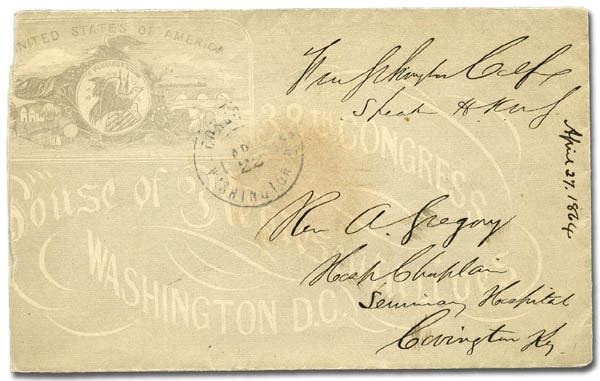 UNITED STATES OF AMERICA
38TH CONGRESS
House of
WASHINGTON D.C.
WASHINGTON
22
Schuyler Colfax
Speak H. Reps
April 27. 1864
Rev A. Gregory
Hosp Chaplain
Seminary Hospital
Covington Ky